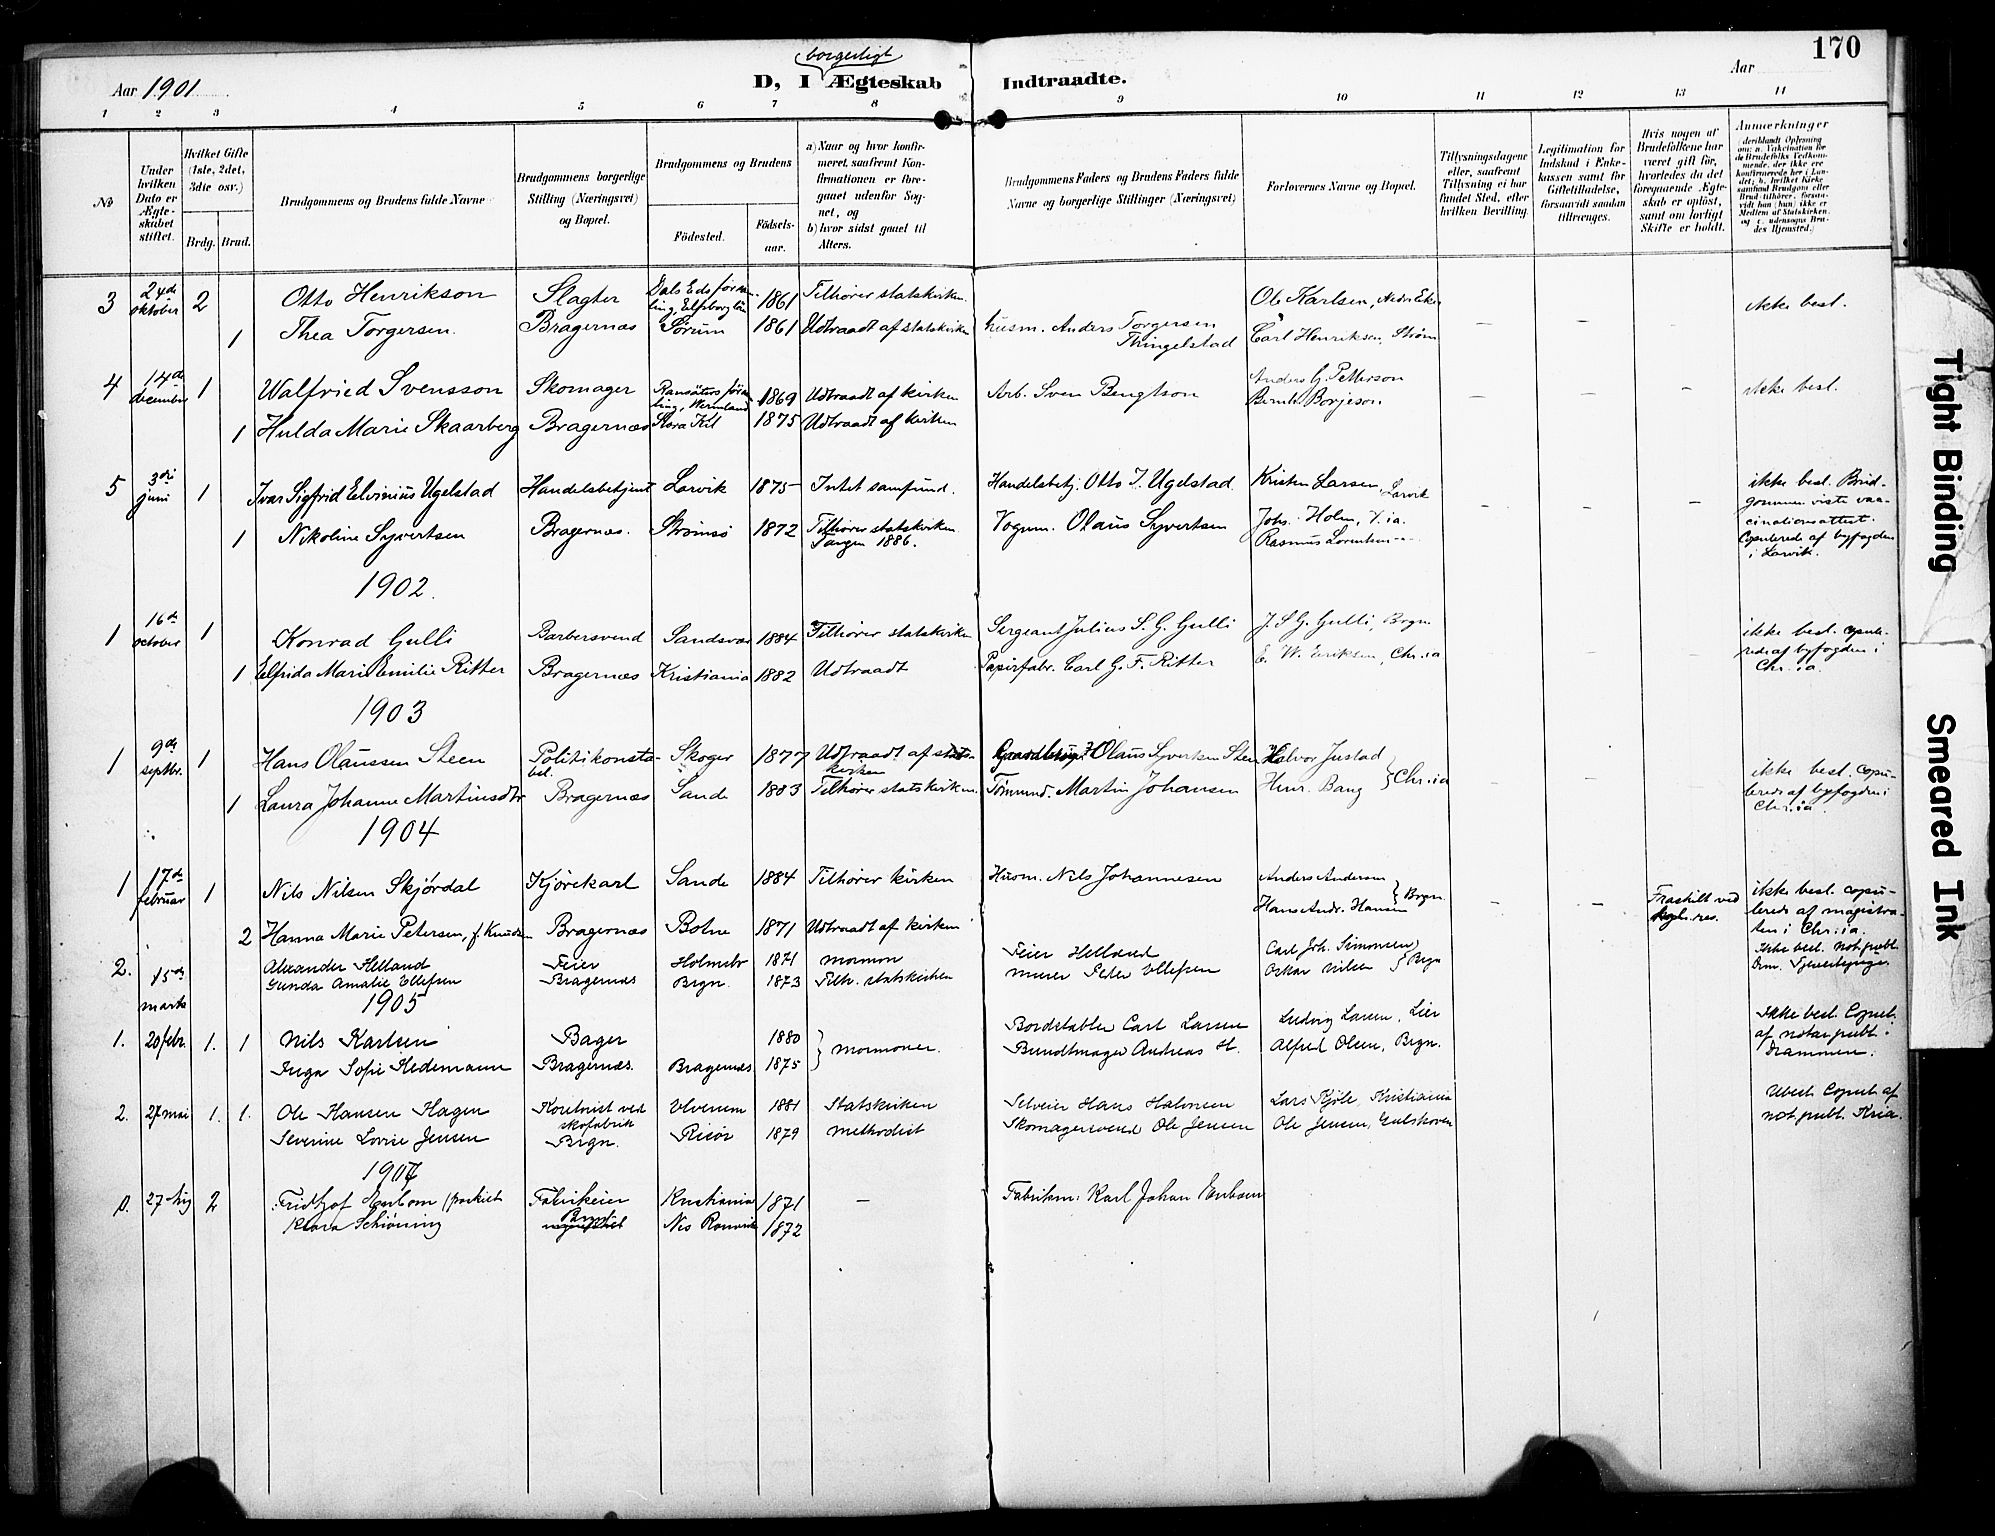 170
Aar 1901
borgerligt
D, I Ægteskab Indtraadte.
Aar
1 2 3 4 5 6 7 8 9 10 11 12 13 14
No
Under hvilken Dato er Ægteskabet stiftet.
Hvilket Gifte (1ste, 2det, 3die osv.)
Brdg. Brud.
Brudgommens og Brudens fulde Navne
Brudgommens borgerlige Stilling (Næringsvei) og Bopæl.
Brudgommens og Brudens
Fødested.
Fødselsaar.
a) Naar og hvor konfirmeret, saafremt Konfirmationen er foregaaet udenfor Sognet, og
b) hvor sidst gaaet til Alters.
Brudgommens Faders og Brudens Faders fulde Navne og borgerlige Stillinger (Næringsvei)
Forlovernes Navne og Bopæl.
Tillysningsdagene eller, saafremt Tillysning ei har fundet Sted, efter hvilken Bevilling.
Legitimation for Indskud i Enkekassen samt for Giftetilladelse, forsaavidt saadan tiltrænges.
Hvis nogen af Brudefolkene har været gift før, hvorledes da det foregaaende Ægteskab er opløst, samt om lovligt Skifte er holdt.
Anmærkninger
3 24de oktober 2 Otto Henrikson Slagter Dals Eds försam­ling, Elfsborg län 1861 Tilhører statskirken. Ole Karlsen, Nedre Eker Ikke best.
1 Thea Torgersen. Bragernæs Sørum 1861 Udtraadt af statskirken husm. Anders Torgersen Thingelstad Carl Henriksen, Strøm
4 14de december 1 Walfried Svensson Skomager Ransäters försam­ling, Wermland 1869 Udtraadt af kirken Arb. Sven Bengtson Anders G. Petterson Ikke best.
1 Hulda Marie Skaarberg Bragernæs Stora Kil 1875 Udtraadt af kirken Bernh. Borjeson
5 3die juni 1 Ivar Sigfrid Elvinius Ugelstad Handelsbetjent Larvik 1875 Intet samfund. Handelsbetj. Otto J. Ugelstad. Kristen Larsen, Larvik ikke best. Brudgommen viste vaccinationsattest. Copulerede af byfogden i Larvik.
1 Nikoline Syvertsen Bragernæs. Strømsø 1872 Tilhører statskirken Tangen 1886. Vognm. Olaus Syvertsen Johs. Holm, Rasmus Lorentsen
1902.
1 16de october 1 Konrad Gulli Barbersvend Sandsvær 1884 Tilhører statskirken Sergeant Julius S. G. Gulli J. S. G. Gulli, Brgn. ikke best. copuleredes af byfogden i Chr.ia.
1 Elfrida Marie Emilie Ritter Bragernæs Kristiania 1882 Udtraadt Papirfabr. Carl G. F. Ritter E. W. Eriksen, Chr.ia
1903
1 9de septbr. 1 Hans Olaussen Steen Politikonstabel. Skoger 1877 Udtraadt af statskirken Olaus Syvertsen Steen Halvor Justad ikke best. copuleredes af byfogden i Chr.ia.
1 Laura Johanne Martinsdtr Bragernæs Sande 1883 Tilhører statskirken. Tømmend. Martin Johansen Henr. Bang } Chr.ia
1904
1 17de februar 1 Nils Nilsen Skjørdal Kjørekarl Sande 1884 Tilhører kirken Husm. Nils Johannesen Anders Andersen Fraskilt ved kgl. res. ikke best. copulerede af magistraten i Chr.ia.
2 Hanna Marie Petersen, f. Knudsen Bragernæs Botne 1871 Udtraadt af kirken Hans Andr. Hansen } Brgn.
2. 15de marts Alexander Helland Feier Holmsbo 1871 mormon Feier Helland Carl Joh. Simonsen Ikke best. Not. publ.
Gunda Amalie Ellefsen Bragernæs Brgn. 1873 Tilh. statskirken murer Peter Ellefsen Oskar Nilsen } Brgn
1905
1. 20 febr. 1. 1 Nils Karlsen Bager 1880 } Mormoner. Bordstabler Carl Larsen Ludvig Larsen, Lier Ikke best. Copul. af notar. publ. i Drammen.
Inga Sofie Hedemann Bragernæs. Bragernæs 1875 Bundtmager Andreas H. Alfred Olsen, Brgn.
2. 27 mai 1. 1. Ole Hansen Hagen Kontorist ved skofabrik Ulvenem 1881 Statskirken Selveier Hans Halvorsen Lars Kjøle, Kristiania Ubest. Copul. af not. publ. Kria.
Severine Lovise Jensen Brgn. Risør 1879 Methodist Skomagersvend Ole Jensen Ole Jensen, Gulskoven
1907
1. 27 Aug 2 Fridtjof Enbom Fabrikeier Kristiania 1871 — Fabrikm. Karl Johan Enbom
Klara Schiøning 1872
Tight Binding
Smeared Ink